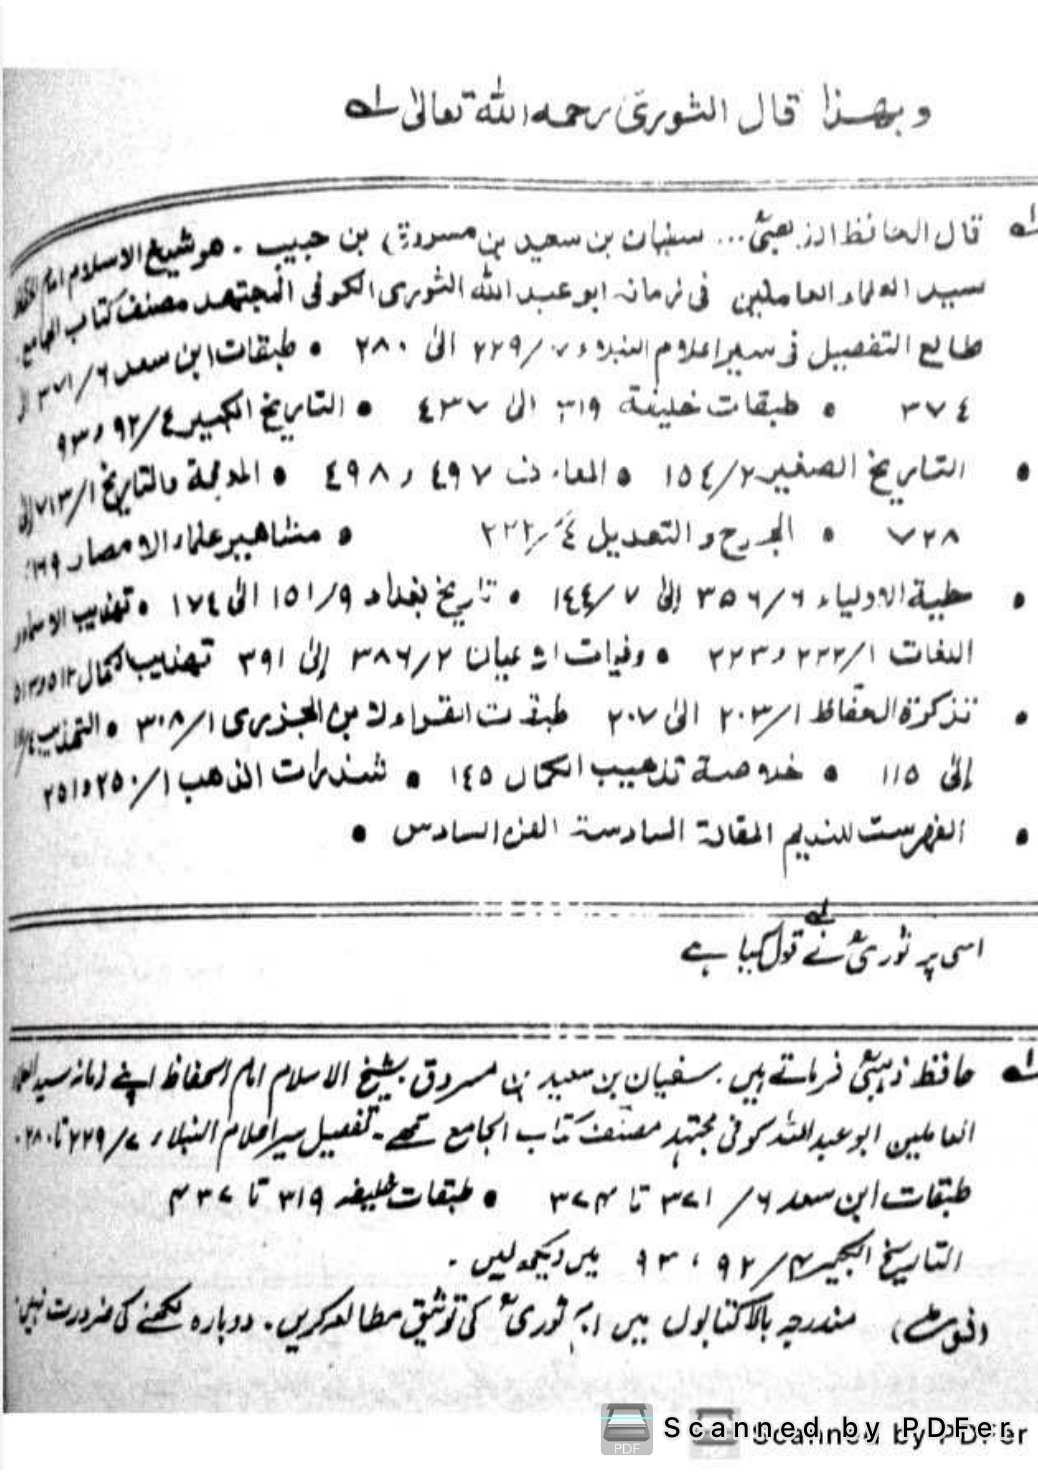 وبهذا قال الثوري رحمه الله تعالى له
له قال الحافظ الذهبیؒ... سفیان بن سعید بن مسروق بن حبيب . هو شيخ الاسلام امام الحفاظ
سيد العلماء العاملين فی زمانه ابو عبد الله الثوری الکوفی المجتهد مصنف كتاب الجامع
طالع التفصيل فی سیر اعلام النبلاء ۲۲۹/۷ الى ۲۸۰ • طبقات ابن سعد ۳۷۱/۶ الى
۳۷٤ • طبقات خليفة ۳۱۹ الى ٤۳۷ • التاریخ الکبیر ۹۲/٤ و ۹۳
• التاریخ الصغير ۱٥٤/۲ • المعارف ٤۹۷ و ٤۹۸ • المعرفة والتاريخ ۷۱۳/۱ إلى
۷۲۸ • الجرح و التعديل ۲۲۲/٤ • مشاهیر علماء الامصار ۱۶۹
• حلية الاولياء ۳٥٦/٦ إلى ۱٤٤/۷ • تاريخ بغداد ۱٥۱/۹ الى ۱۷٤ • تهذيب الاسماء و
اللغات ۲۲۲/۱ و ۲۲۳ • وفيات الاعيان ۳۸٦/۲ إلى ۳۹۱ تهذيب الكمال ٥۱۲ و ٥۱۳
• تذكرة الحفاظ ۲۰۳/۱ الى ۲۰۷ طبقات القراء لابن الجزری ۳۰۸/۱ • التهذيب
إلى ۱۱٥ • خلاصة تذهيب الكمال ۱٤٥ • شذرات الذهب ۲٥۰/۱ و ۲٥۱
• الفهرست للنديم المقالة السادسة الفن السادس •
اسی پر ثوریؒ نے قول کیا ہے له
له حافظ ذہبیؒ فرماتے ہیں . سفیان بن سعید بن مسروق . شیخ الاسلام امام الحفاظ اپنے زمانہ سید العلماء
العاملین ابو عبد اللہ کوفی مجتہد مصنف کتاب الجامع تھے ۔ تفصیل سیر اعلام النبلاء ۲۲۹/۷ تا ۲۸۰ .
طبقات ابن سعد ۶ / ۳۷۱ تا ۳۷۴ • طبقات خلیفہ ۳۱۹ تا ۴۳۷
التاریخ الکبیر ۴ / ۹۲ ، ۹۳ میں دیکھ لیں ۔
(نوٹ) مندرجہ بالا کتابوں میں امام ثوریؒ کی توثیق مطالعہ کریں ۔ دوبارہ لکھنے کی ضرورت نہیں
Scanned by PDFer
Scanned by PDFer
PDF